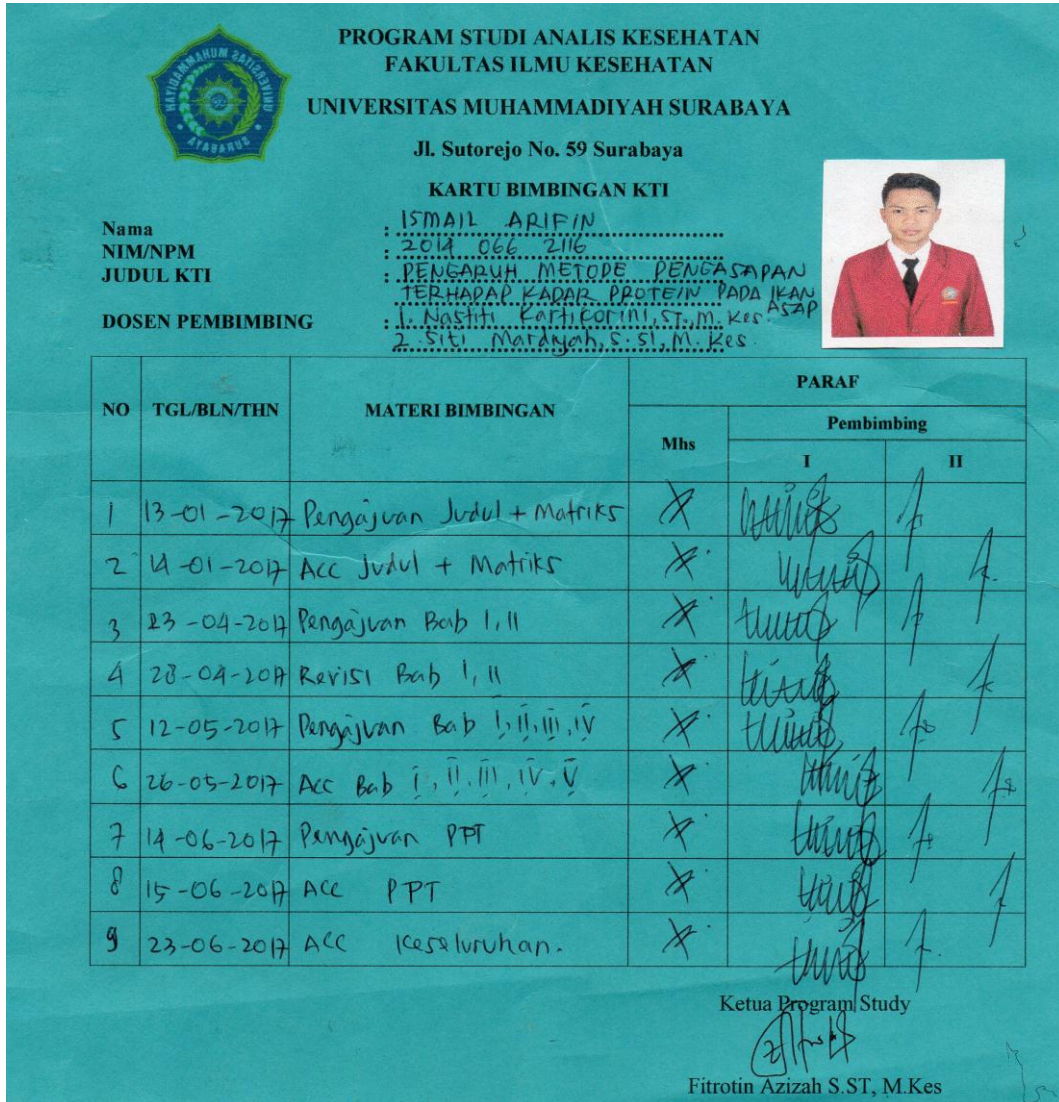 PROGRAM STUDI ANALIS KESEHATAN
FAKULTAS ILMU KESEHATAN
UNIVERSITAS MUHAMMADIYAH SURABAYA
Jl. Sutorejo No. 59 Surabaya
KARTU BIMBINGAN KTI
UNIVERSITAS MUHAMMADIYAH SURABAYA
Nama : ISMAIL ARIFIN
NIM/NPM : 2014 066 2116
JUDUL KTI : PENGARUH METODE PENGASAPAN
TERHADAP KADAR PROTEIN PADA IKAN
ASAP
DOSEN PEMBIMBING : 1. Nastiti Kartikorini, ST., M. Kes
2. Siti Mardiyah, S. Si, M. Kes.
NO TGL/BLN/THN MATERI BIMBINGAN PARAF
Mhs Pembimbing
I II
1 13-01-2017 Pengajuan Judul + Matriks
2 14-01-2017 Acc Judul + Matriks
3 23-04-2017 Pengajuan Bab I, II
4 28-04-2017 Revisi Bab I, II
5 12-05-2017 Pengajuan Bab I, II, III, IV
6 26-05-2017 Acc Bab I, II, III, IV, V
7 14-06-2017 Pengajuan PPT
8 15-06-2017 ACC PPT
9 23-06-2017 ACC Keseluruhan.
Ketua Program Study
Fitrotin Azizah S.ST, M.Kes